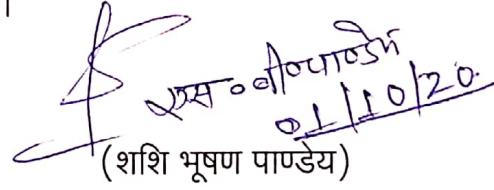 ।
एस॰बी॰पाण्डेय
01/10/20.
(शशि भूषण पाण्डेय)